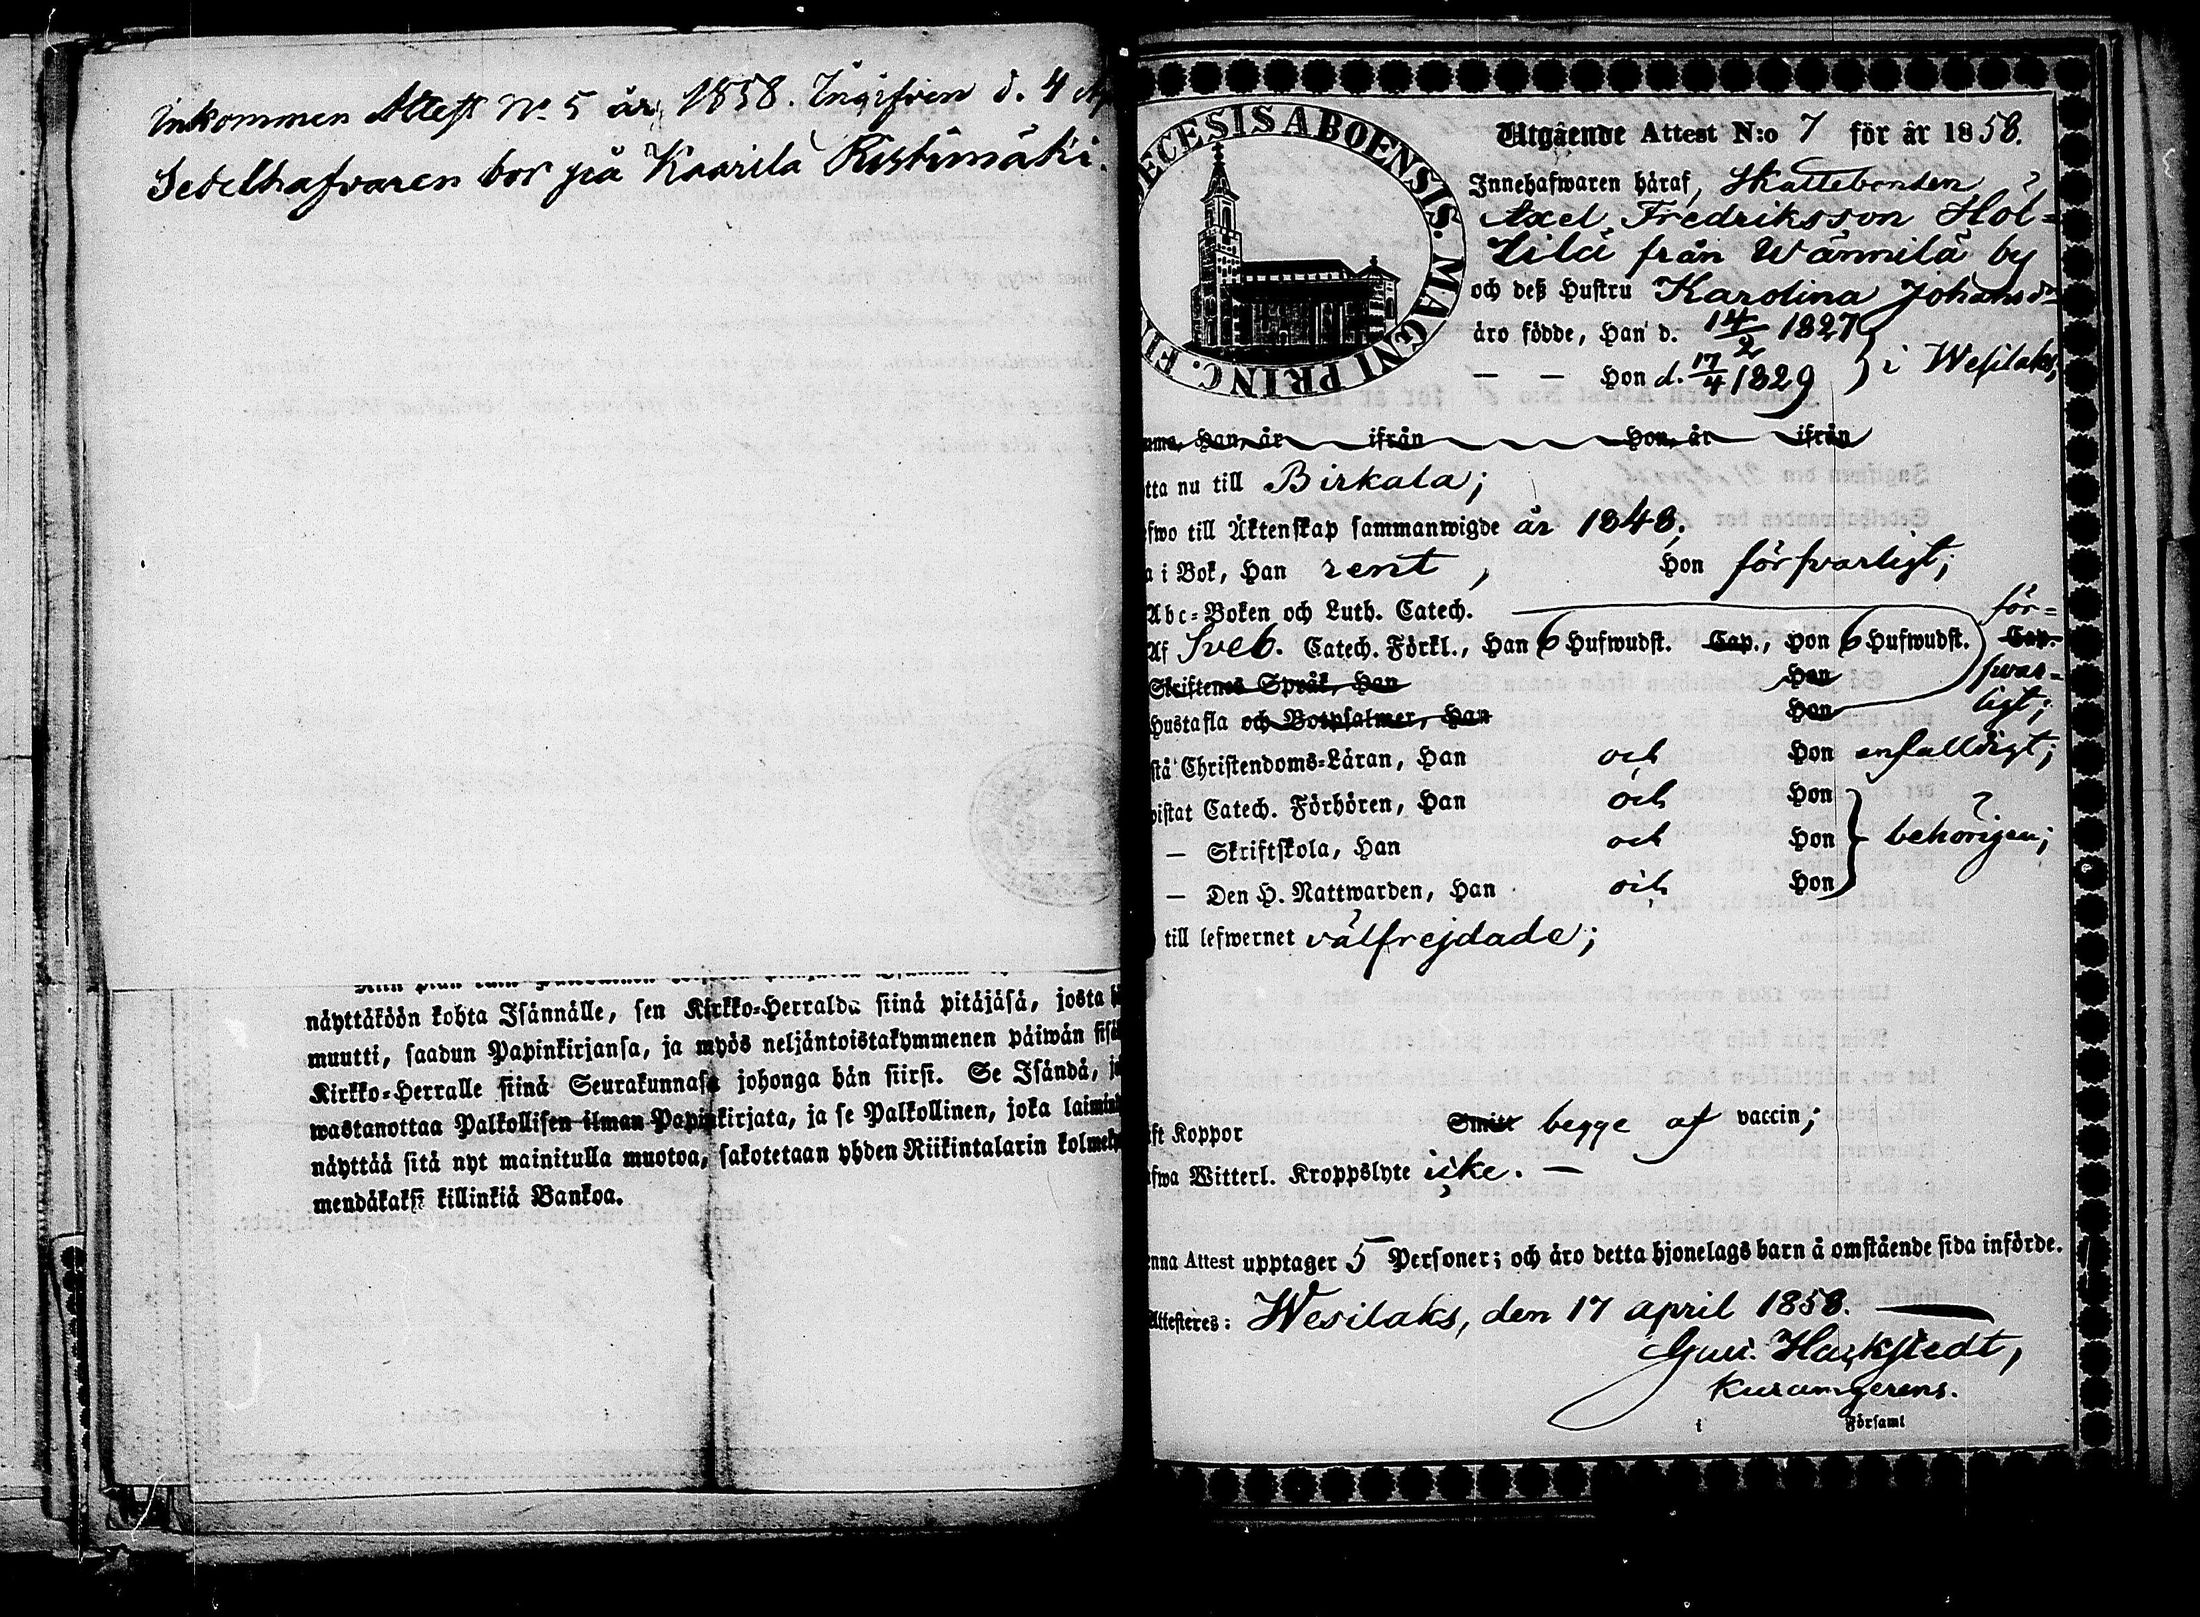 Inkommen Attest No 5 år 1858. Ingifven d. 4
Sedelhafvaren bor på Kaarila Ristimäki.
näyttäköön kohta Isännälle, sen Kirkko-Herralda siinä pitäjäsä, josta
muutti, saadun Papinkirjansa, ja myös neljäntoistakymmenen päiwän
Kirkko-Herralle siinä Seurakunnasa johonga hän siirsi. Se Isändä,
wastanottaa Palkollisen ilman Papinkirjata, ja se Palkollinen, joka
näyttää sitä nyt mainitulla muotoa, sakotetaan yhden Riikintalarin
mendäkaksi killinkiä Bankoa.
ECESIS ABOENSIS. MAGNI PRINC. FI
Utgående Attest N:o 7 för år 1858.
Innehafwaren häraf, Skattebonden
Axel Fredriksson Hol-
lilä från Wännilä by
och deß Hustru Karolina Johansdr
äro födde, Han d. 14/2 1827
— — Hon d. 17/4 1829 } i Wesilaks,
Han, är ifrån Hon, är ifrån
tta nu till Birkala;
fwo till Äktenskap sammanwigde år 1848.
a i Bok, Han rent, Hon förswarligt;
Abc-Boken och Luth. Catech. för-
Af Sveb. Catech. Förkl., Han 6 Hufwudst. Cap., Hon 6 Hufwudst. Cap.
Skriftenes Språk, Han Hon swar-
Hustafla och Botpsalmer, Han Hon ligt;
stå Christendoms-Läran, Han och Hon enfalldigt;
istat Catech. Förhören, Han och Hon
— Skriftskola, Han och Hon } behörigen;
— Den H. Nattwarden, Han och Hon
till lefwernet välfrejdade;
ft Koppor Smitt begge af vaccin;
fwa Witterl. Kroppslyte icke. —
nna Attest upptager 5 Personer; och äro detta hjonelags barn å omstående sida införde.
Attesteres: Wesilaks, den 17 april 1858. —
Hackstedt,
Kuramgerens.
i Församl